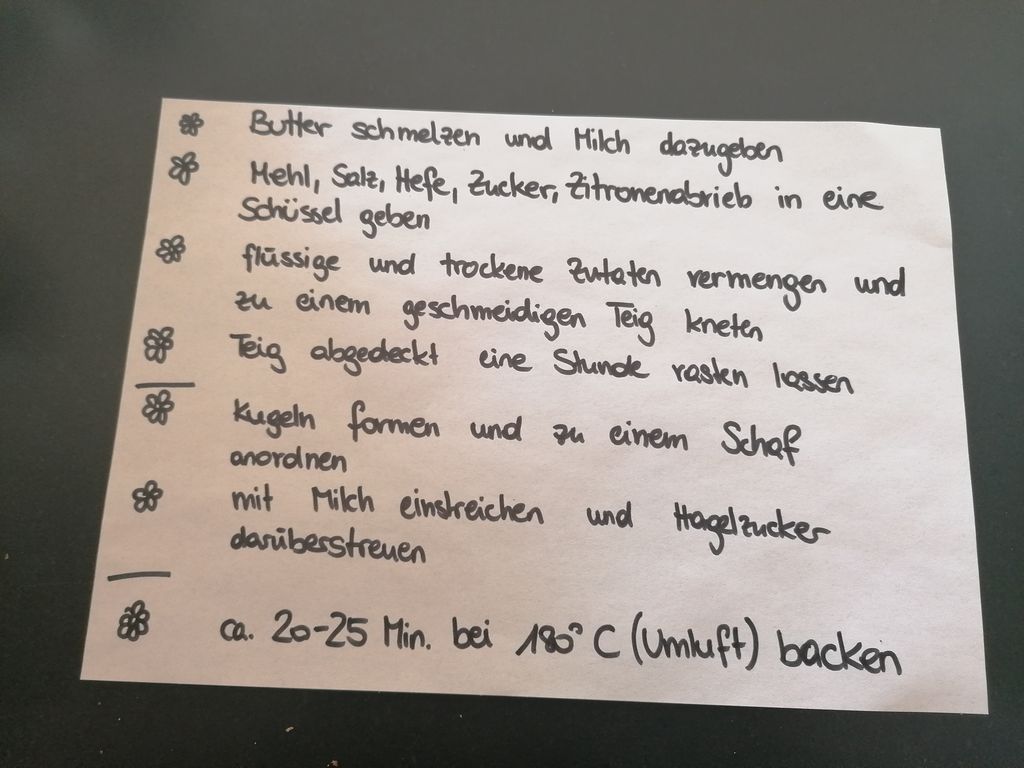 Butter schmelzen und Milch dazugeben
Mehl, Salz, Hefe, Zucker, Zitronenabrieb in eine
Schüssel geben
flüssige und trockene Zutaten vermengen und
zu einem geschmeidigen Teig kneten
Teig abgedeckt eine Stunde rasten lassen
Kugeln formen und zu einem Schaf
anordnen
mit Milch einstreichen und Hagelzucker
darüberstreuen
ca. 20-25 Min. bei 180° C (Umluft) backen